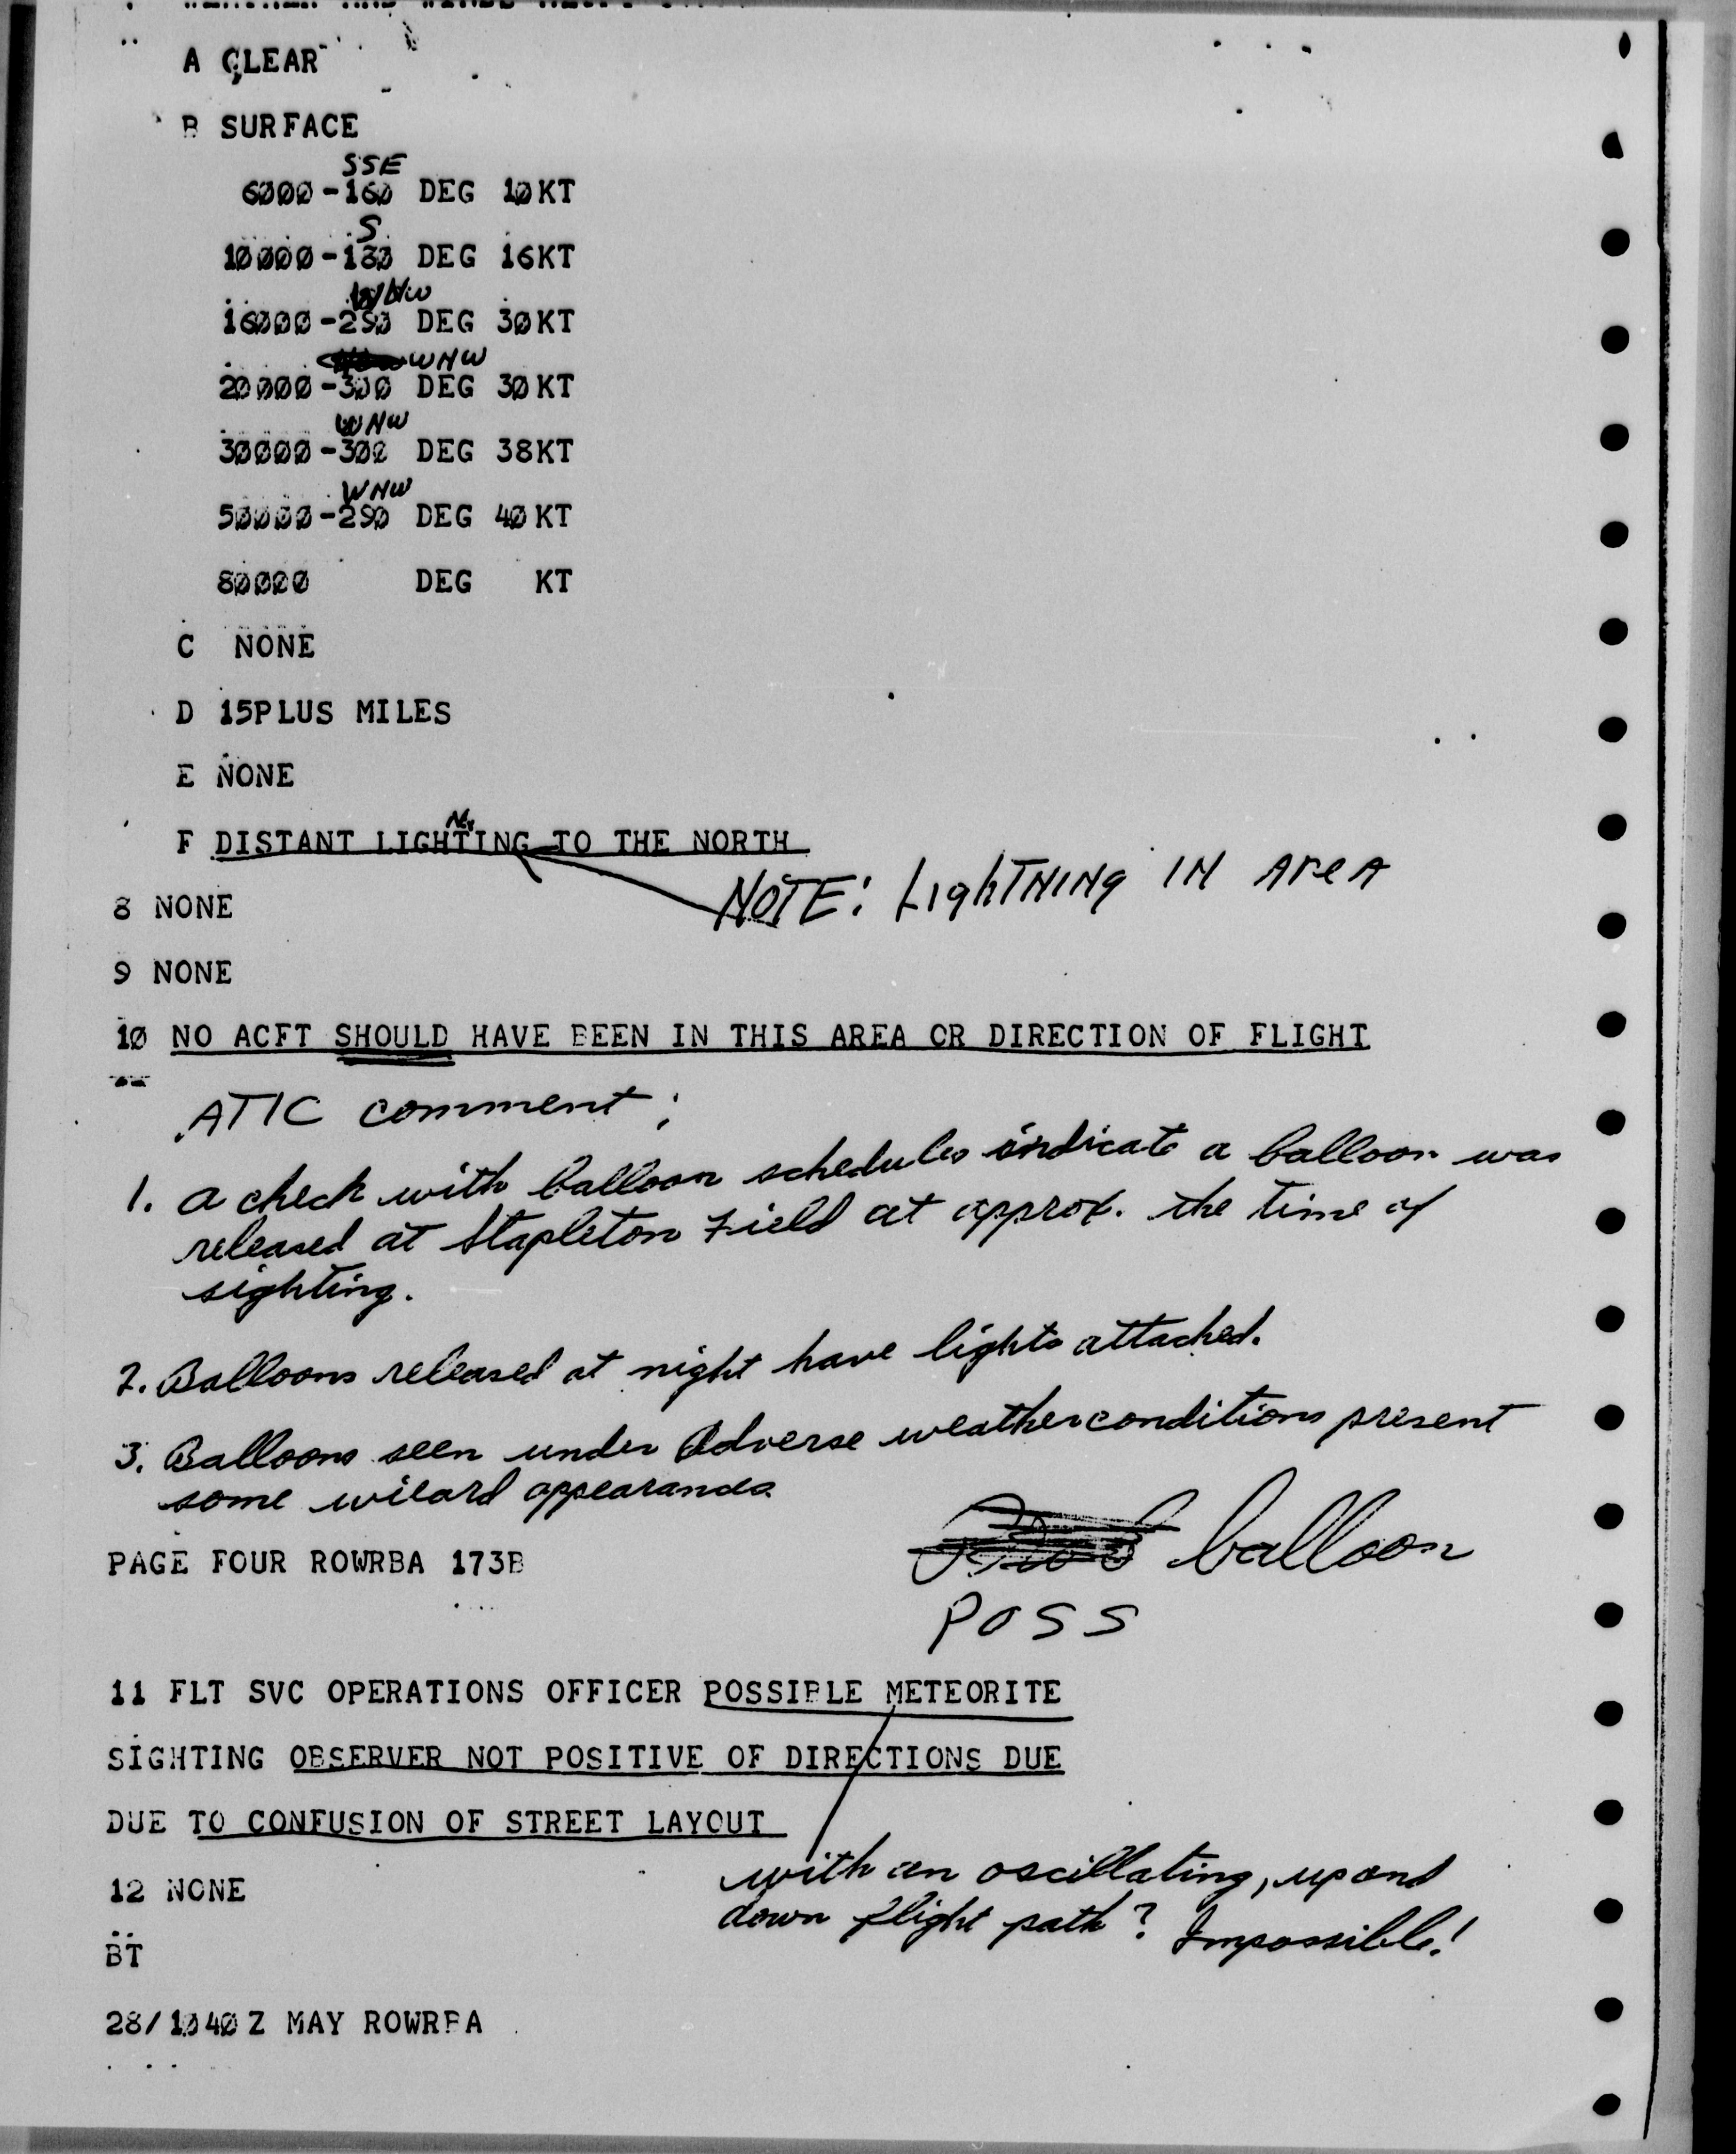 A CLEAR
B SURFACE
SSE
6000-160 DEG 10KT
S
10000-180 DEG 16KT
WNW
16000-290 DEG 30KT
WNW
20000-300 DEG 30KT
WNW
30000-300 DEG 38KT
WNW
50000-290 DEG 40KT
80000 DEG KT
C NONE
D 15PLUS MILES
E NONE
N
F DISTANT LIGHTING TO THE NORTH
NOTE: LighTNINg IN AreA
8 NONE
9 NONE
10 NO ACFT SHOULD HAVE BEEN IN THIS AREA OR DIRECTION OF FLIGHT
ATIC comment:
1. A check with balloon schedules indicate a balloon was
released at Stapleton Field at approx. the time of
sighting.
2. Balloons released at night have lights attached.
3. Balloons seen under adverse weather conditions present
some wieard appearances
balloon
PAGE FOUR ROWRBA 173B
POSS
11 FLT SVC OPERATIONS OFFICER POSSIBLE METEORITE
SIGHTING OBSERVER NOT POSITIVE OF DIRECTIONS DUE
DUE TO CONFUSION OF STREET LAYOUT
with an oscillating, up and
down flight path? Impossible!
12 NONE
BT
28/1040Z MAY ROWRBA